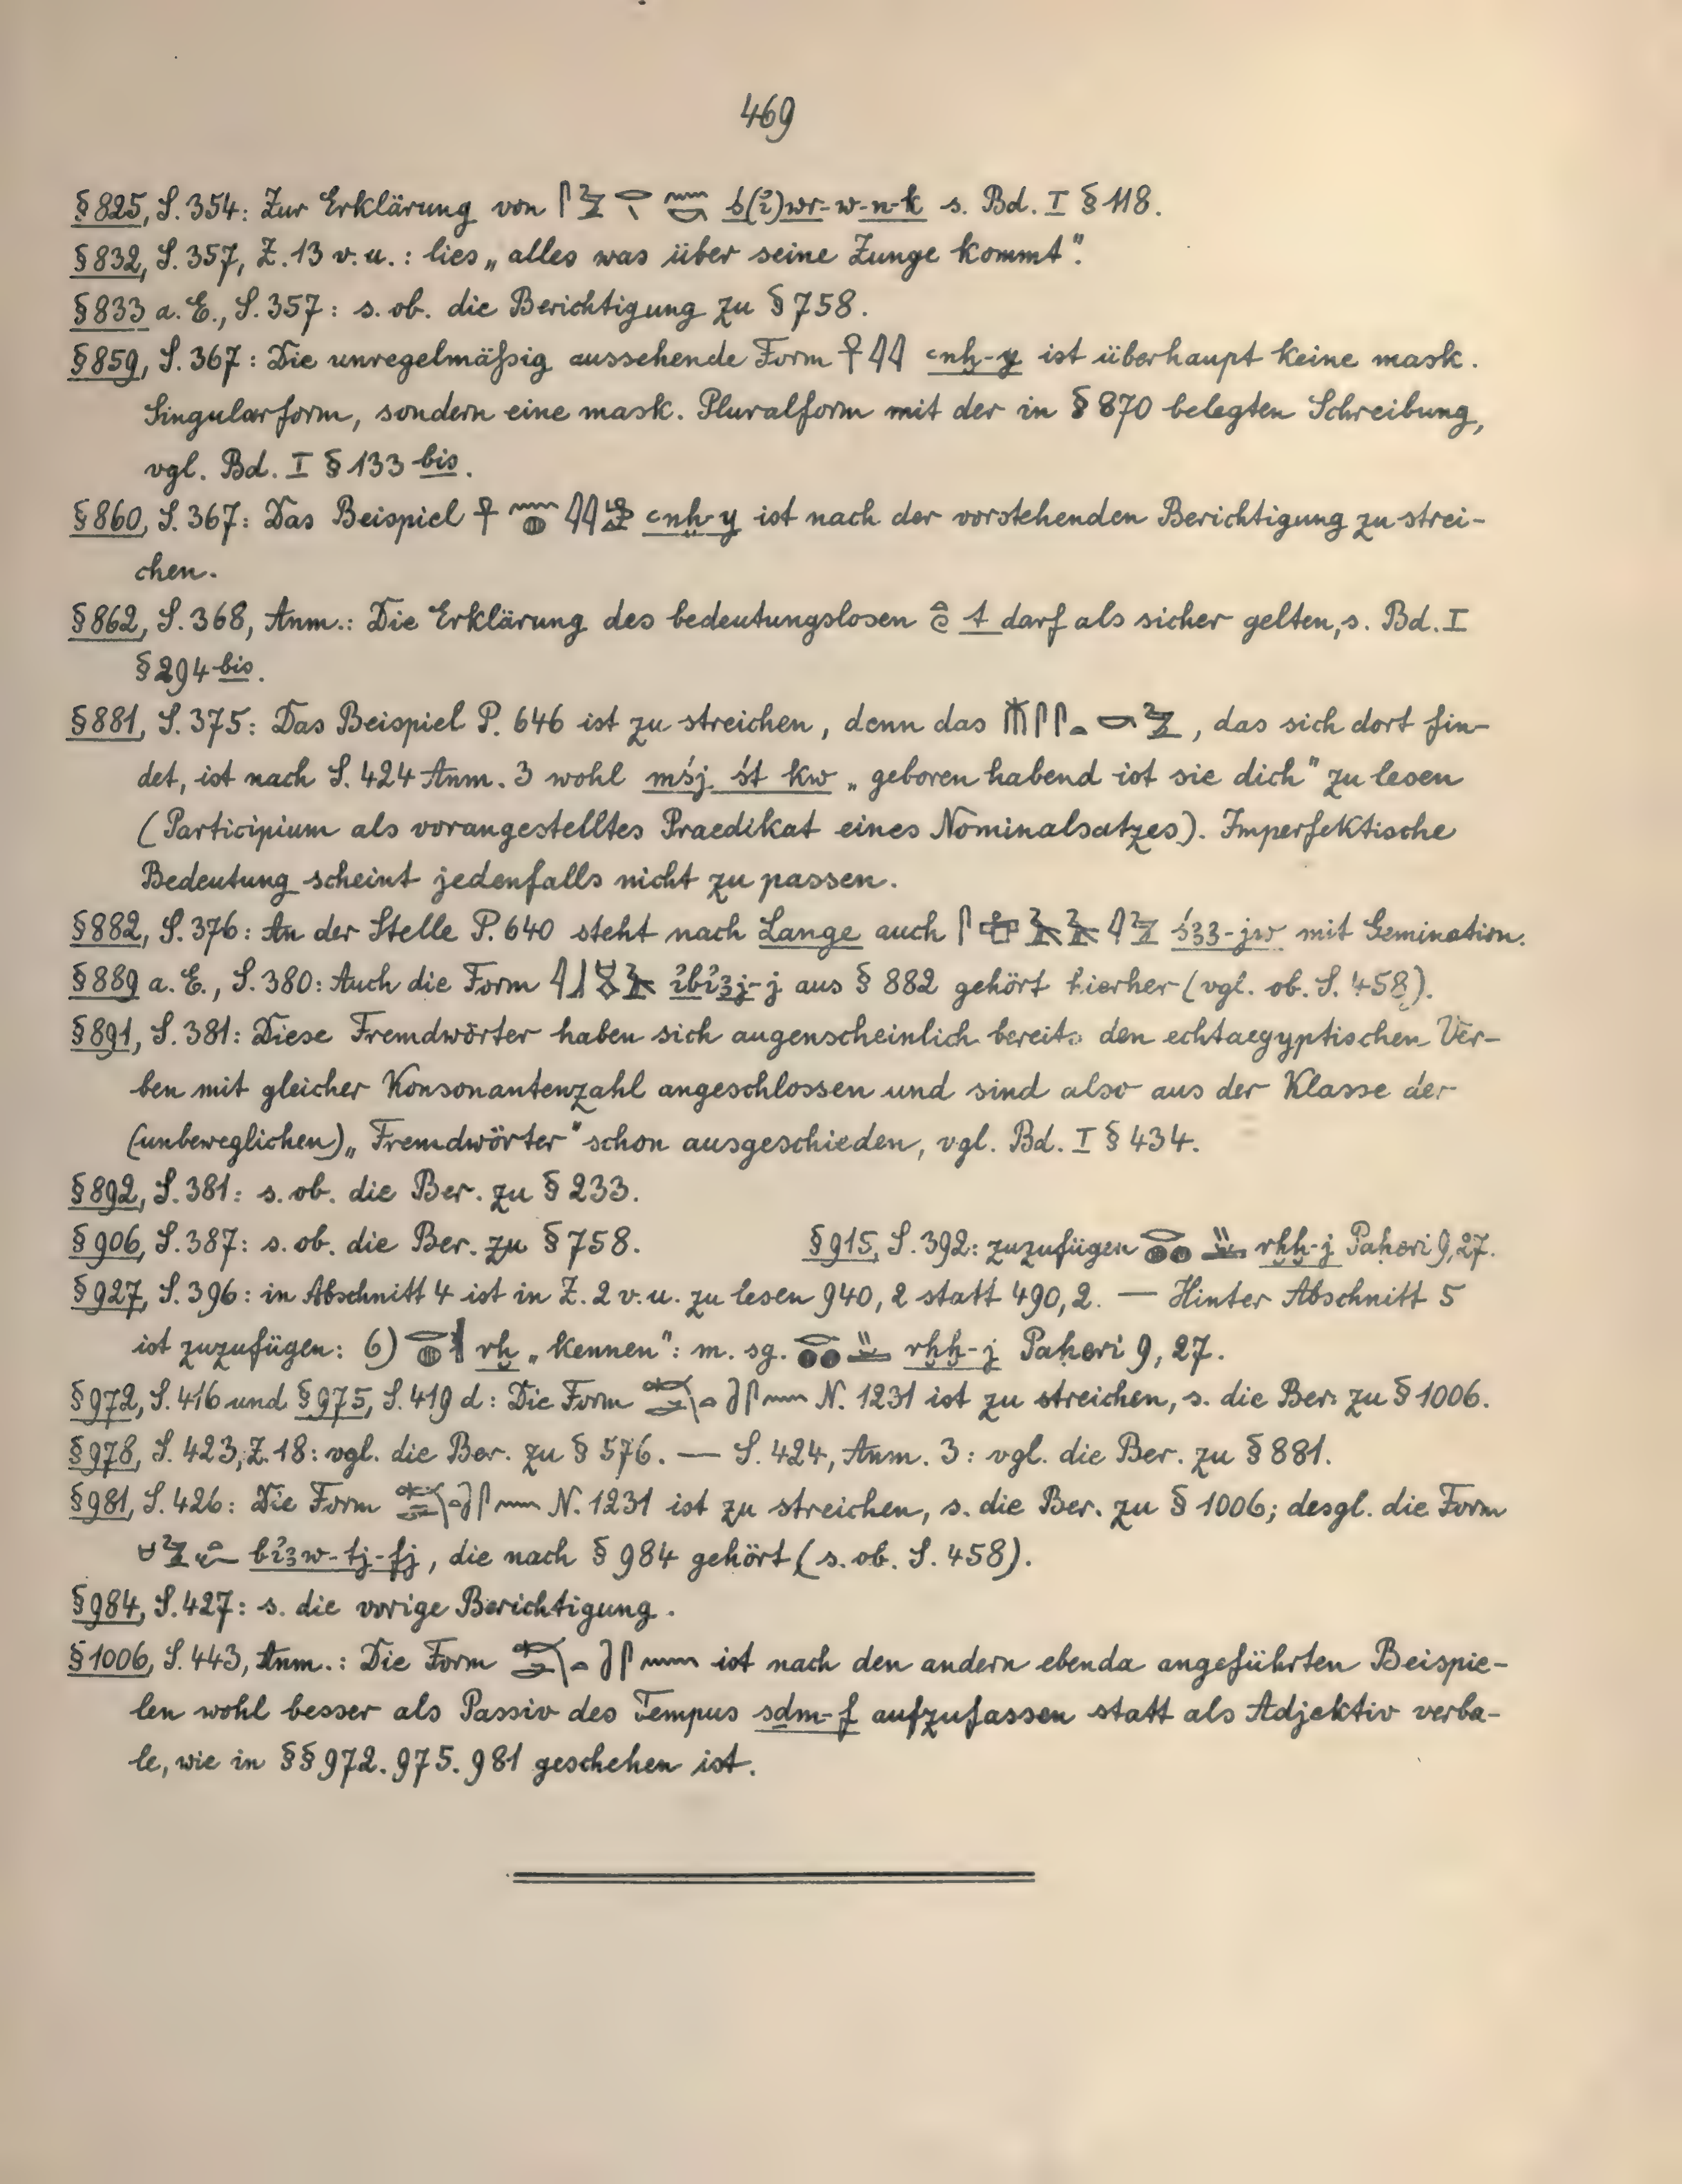 469
§825, S. 354: Zur Erklärung von ś(i̓)wr-w-n-k s. Bd. I §118.
§832, S. 357, Z. 13 v. u.: lies „alles was über seine Zunge kommt“.
§833 a. E., S. 357: s. ob. die Berichtigung zu §758.
§859, S. 367: Die unregelmäßig aussehende Form 𓋹𓇋𓇋 ꜥnḫ-y ist überhaupt keine mask.
Singularform, sondern eine mask. Pluralform mit der in §870 belegten Schreibung,
vgl. Bd. I §133 bis.
§860, S. 367: Das Beispiel ꜥnḫ-y ist nach der vorstehenden Berichtigung zu strei-
chen.
§862, S. 368, Anm.: Die Erklärung des bedeutungslosen t darf als sicher gelten, s. Bd. I
§294 bis.
§881, S. 375: Das Beispiel P. 646 ist zu streichen, denn das 𓄟𓋴𓋴𓏏𓎡𓅱, das sich dort fin-
det, ist nach S. 424 Anm. 3 wohl mśj śt kw „geboren habend ist sie dich“ zu lesen
(Participium als vorangestelltes Praedikat eines Nominalsatzes). Imperfektische
Bedeutung scheint jedenfalls nicht zu passen.
§882, S. 376: An der Stelle P. 640 steht nach Lange auch śꜣꜣ-jw mit Gemination.
§889 a. E., S. 380: Auch die Form i̓bi̓ꜣj-j aus §882 gehört hierher (vgl. ob. S. 458).
§891, S. 381: Diese Fremdwörter haben sich augenscheinlich bereits den echtaegyptischen Ver-
ben mit gleicher Konsonantenzahl angeschlossen und sind also aus der Klasse der
(unbeweglichen) „Fremdwörter“ schon ausgeschieden, vgl. Bd. I §434.
§892, S. 381: s. ob. die Ber. zu §233.
§906, S. 387: s. ob. die Ber. zu §758. §915, S. 392: zuzufügen rḫḫ-j Paheri 9,27.
§927, S. 396: in Abschnitt 4 ist in Z. 2 v. u. zu lesen 940, 2 statt 490, 2. — Hinter Abschnitt 5
ist zuzufügen: 6) rḫ „kennen“: m. sg. rḫḫ-j Paheri 9, 27.
§972, S. 416 und §975, S. 419 d: Die Form N. 1231 ist zu streichen, s. die Ber. zu §1006.
§978, S. 423, Z. 18: vgl. die Ber. zu §576. — S. 424, Anm. 3: vgl. die Ber. zu §881.
§981, S. 426: Die Form N. 1231 ist zu streichen, s. die Ber. zu §1006; desgl. die Form
bi̓ꜣw-tj-fj, die nach §984 gehört (s. ob. S. 458).
§984, S. 427: s. die vorige Berichtigung.
§1006, S. 443, Anm.: Die Form ist nach den andern ebenda angeführten Beispie-
len wohl besser als Passiv des Tempus sdm-f aufzufassen statt als Adjektiv verba-
le, wie in §§972. 975. 981 geschehen ist.